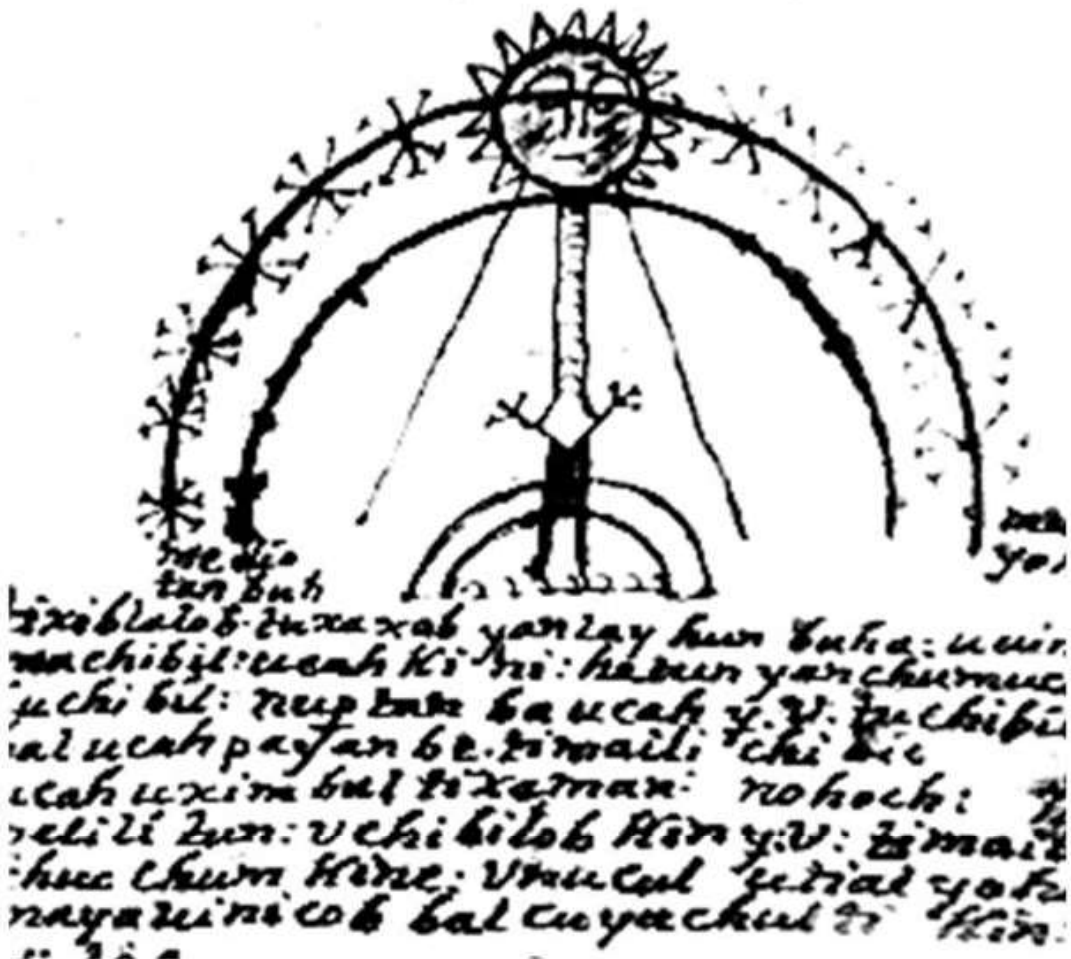 medio
tan buh
tu xaxob yanlay hun buha: u uin
machibil: ucah Ki ni: hetun yanchumuc
uchi bil: nup tan ba ucah y.V. tuchibi
al ucah payan be. timaili chi bic
ucah uximbul tixaman: nohoch:
elili tun: Vchibilob Kin y.V: timail
huc chum Kine: Vnucul utial yoh
mayauinicob bal cuyuchul ti Kin: